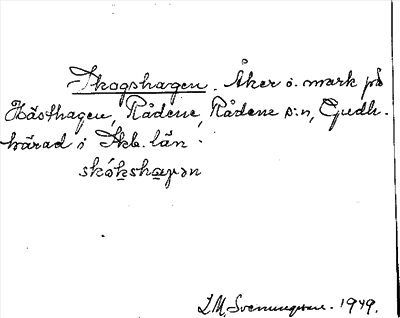 Skogshagen. Åker o. mark på
Hästhagen, Rådene, Rådene s:n, Gudh.
härad i Skb. län.
skókshaγən
L M. Svenungsson. 1949.